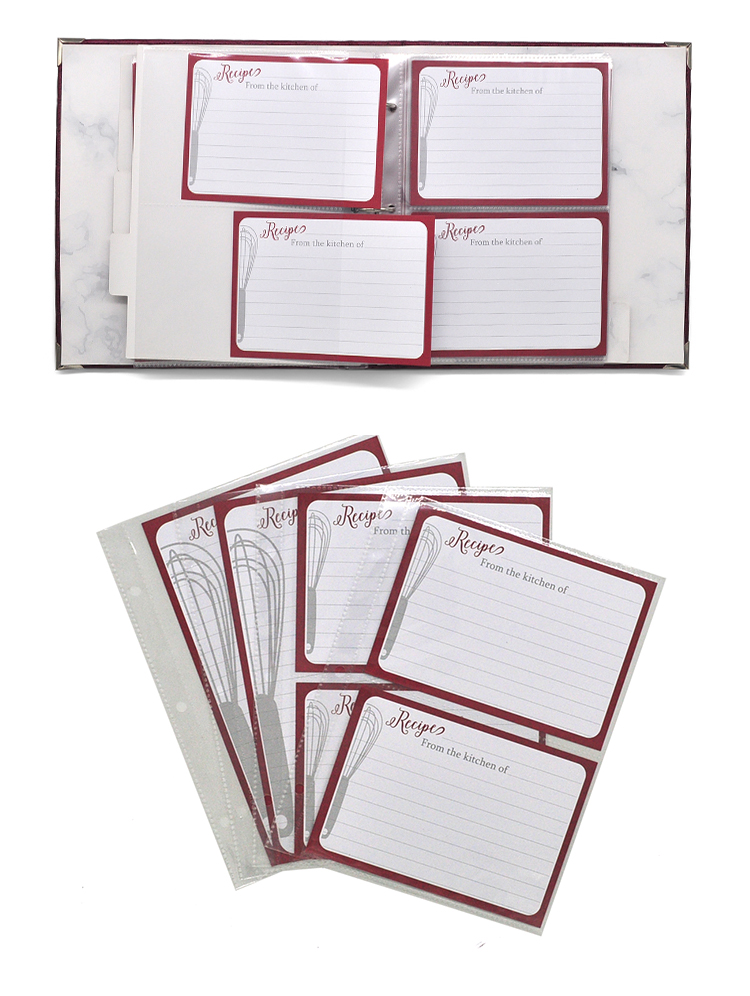 Recipe
From the kitchen of
Recipe
From the kitchen of
Recipe
From the kitchen of
Recipe
From the kitchen of
Rec
Recip
Recipe
From th
Recipe
From the kitchen of
Re
Recipe
From the kitchen of